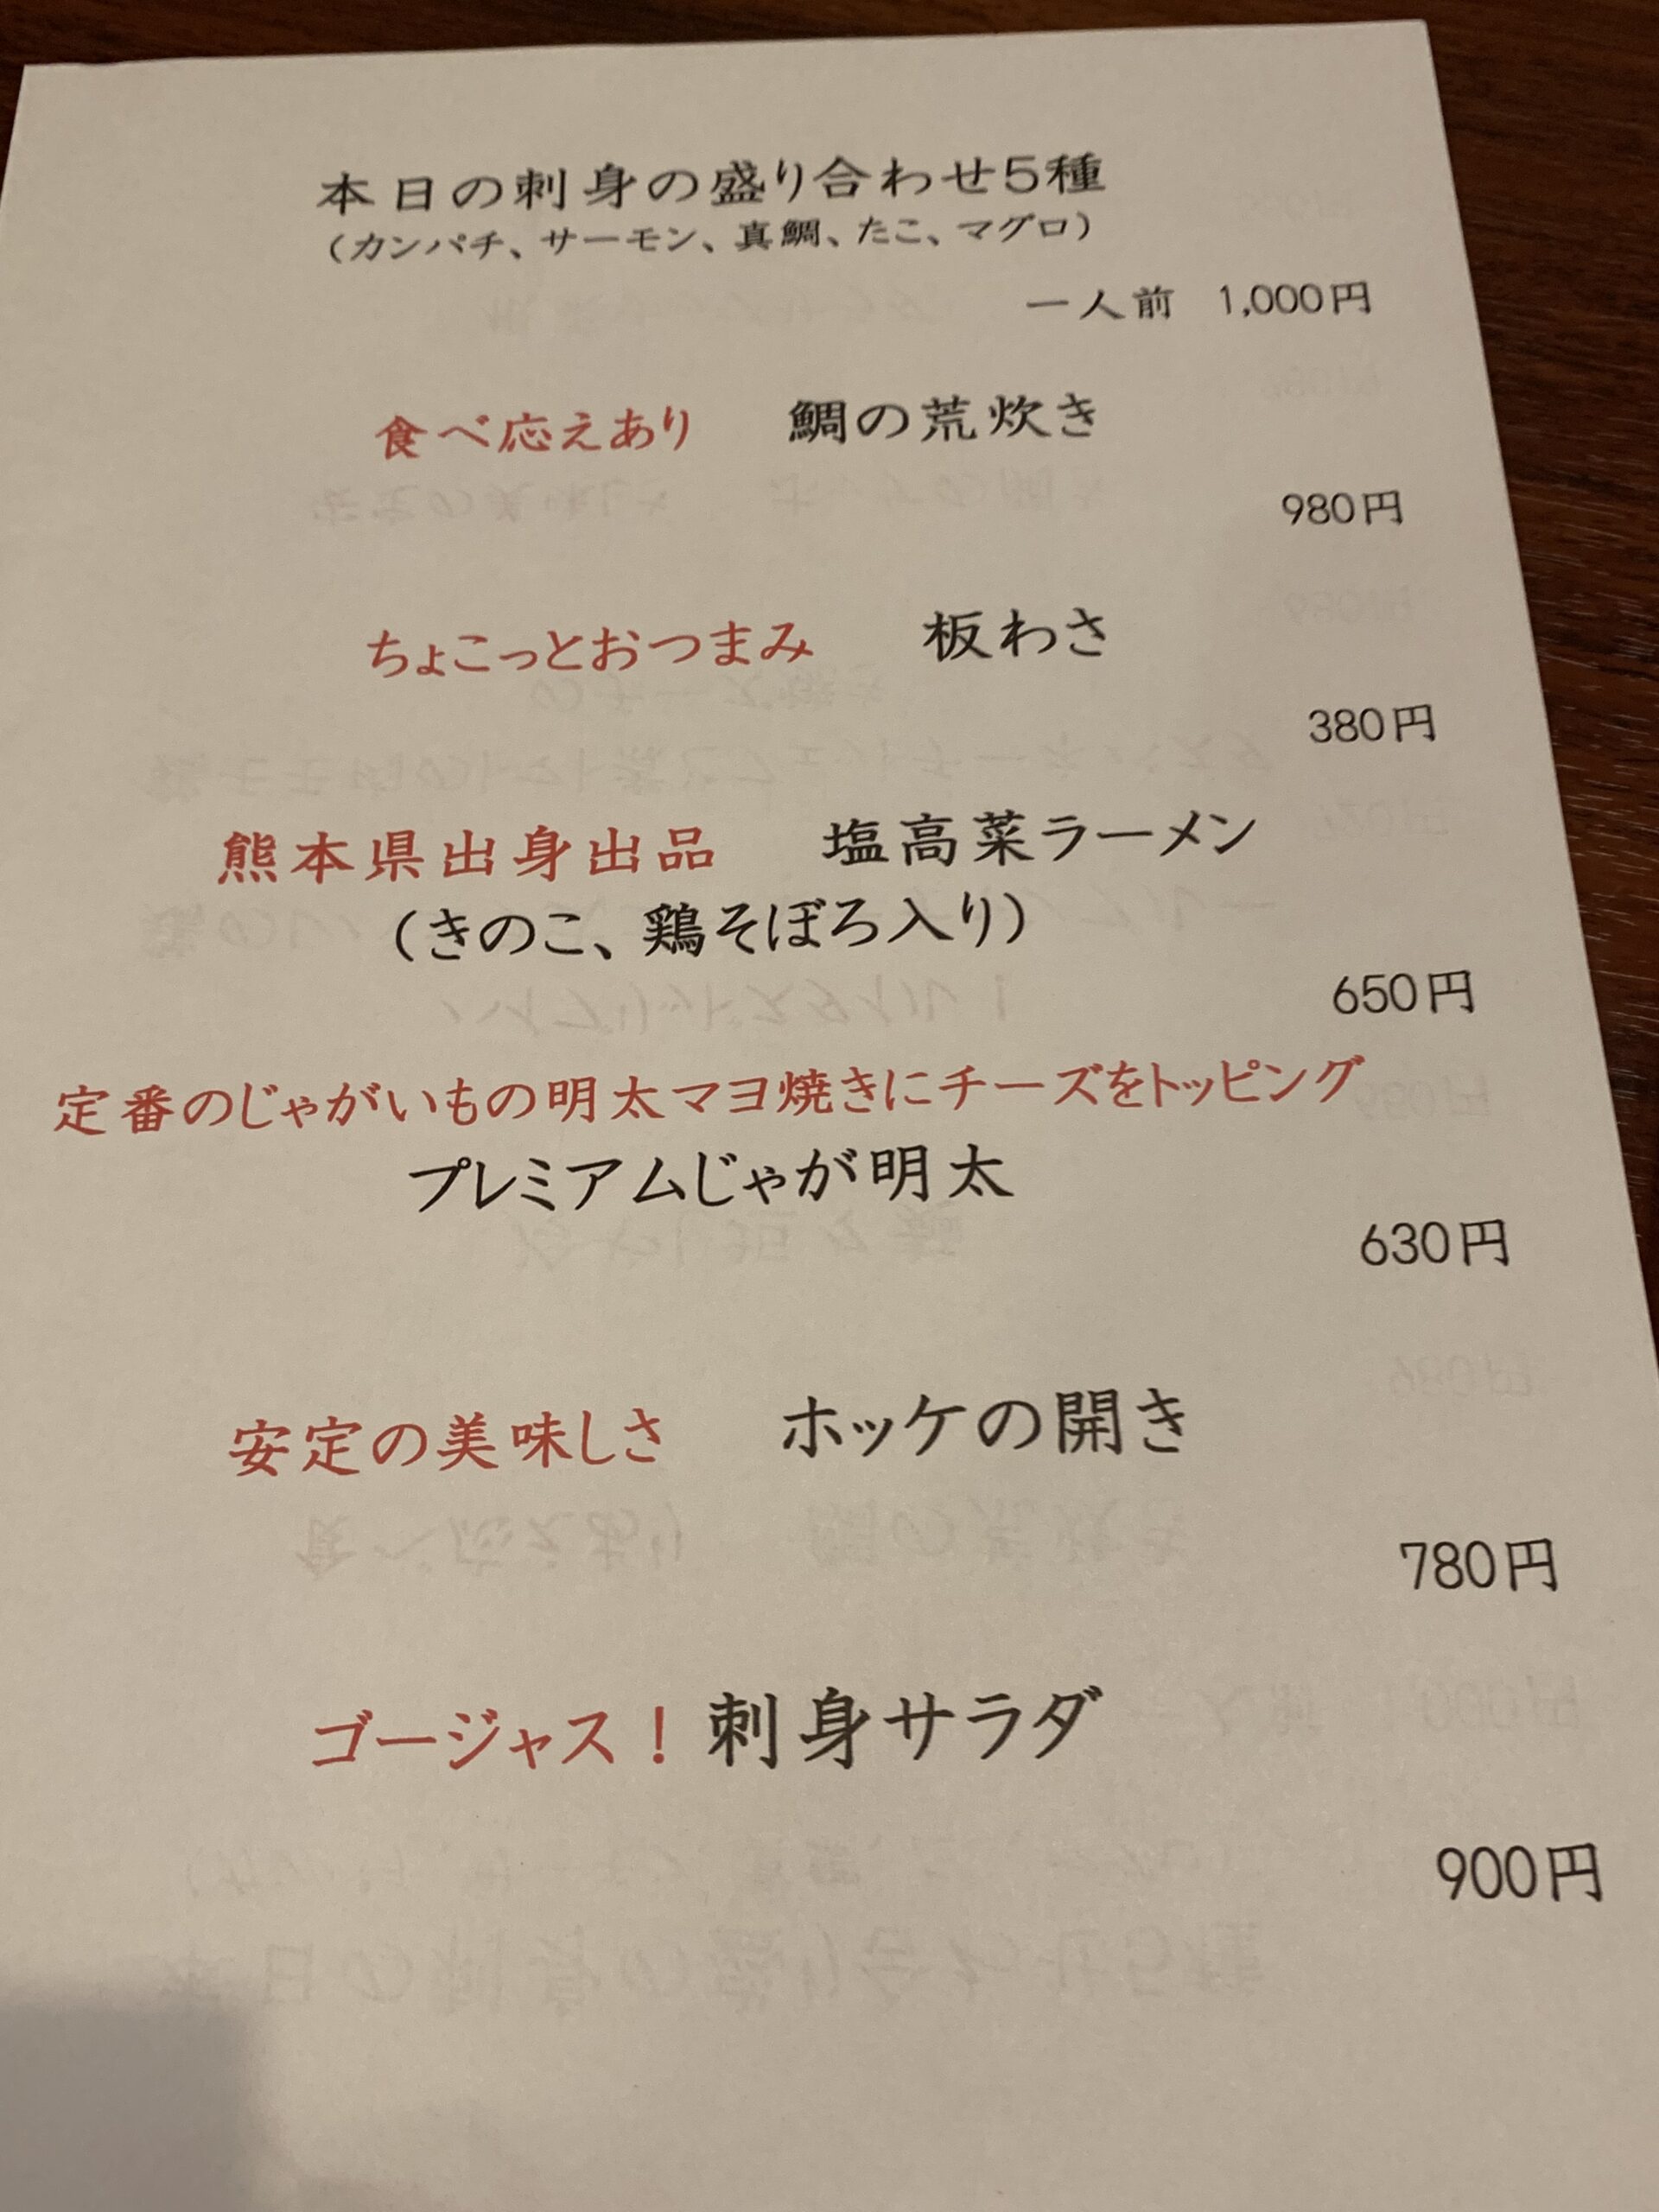 本日の刺身の盛り合わせ5種
（カンパチ、サーモン、真鯛、たこ、マグロ）
一人前 1,000円
食べ応えあり 鯛の荒炊き
980円
ちょこっとおつまみ 板わさ
380円
熊本県出身出品 塩高菜ラーメン
（きのこ、鶏そぼろ入り）
650円
定番のじゃがいもの明太マヨ焼きにチーズをトッピング
プレミアムじゃが明太
630円
安定の美味しさ ホッケの開き
780円
ゴージャス！刺身サラダ
900円